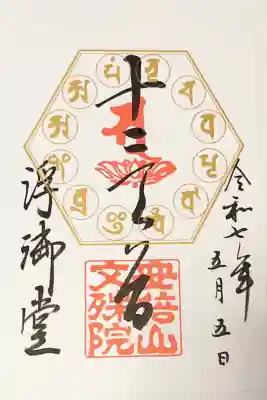 令和七年
五月五日
十二天
浮御堂
安倍山
文殊院